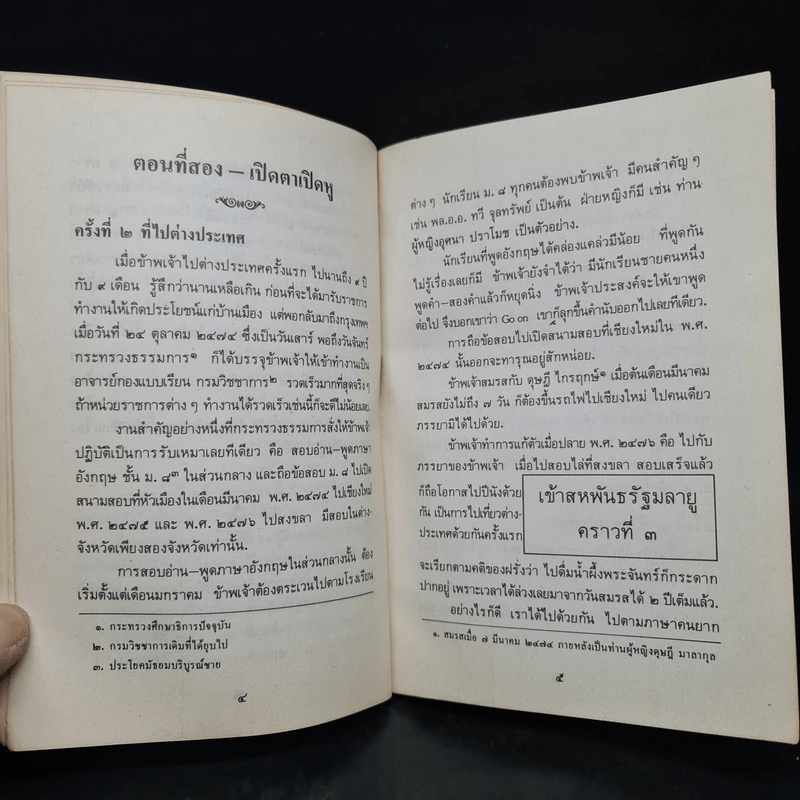 ตอนที่สอง — เปิดตาเปิดหู
ครั้งที่ ๒ ที่ไปต่างประเทศ
เมื่อข้าพเจ้าไปต่างประเทศครั้งแรก ไปนานถึง ๙ ปี
กับ ๙ เดือน รู้สึกว่านานเหลือเกิน ก่อนที่จะได้มารับราชการ
ทำงานให้เกิดประโยชน์แก่บ้านเมือง แต่พอกลับมาถึงกรุงเทพฯ
เมื่อวันที่ ๒๔ ตุลาคม ๒๔๗๔ ซึ่งเป็นวันเสาร์ พอถึงวันจันทร์
กระทรวงธรรมการ๑ ก็ได้บรรจุข้าพเจ้าให้เข้าทำงานเป็น
อาจารย์กองแบบเรียน กรมวิชชาการ๒ รวดเร็วมากที่สุดจริงๆ
ถ้าหน่วยราชการต่างๆ ทำงานได้รวดเร็วเช่นนี้ก็จะดีไม่น้อยเลย
งานสำคัญอย่างหนึ่งที่กระทรวงธรรมการสั่งให้ข้าพเจ้า
ปฏิบัติเป็นการรับเหมาเลยทีเดียว คือ สอบอ่าน–พูดภาษา
อังกฤษ ชั้น ม. ๘๓ ในส่วนกลาง และถือข้อสอบ ม. ๘ ไปเปิด
สนามสอบที่หัวเมืองในเดือนมีนาคม พ.ศ. ๒๔๗๔ ไปเชียงใหม่
พ.ศ. ๒๔๗๕ และ พ.ศ. ๒๔๗๖ ไปสงขลา มีสอบในต่าง-
จังหวัดเพียงสองจังหวัดเท่านั้น
การสอบอ่าน–พูดภาษาอังกฤษในส่วนกลางนั้น ต้อง
เริ่มตั้งแต่เดือนมกราคม ข้าพเจ้าต้องตระเวนไปตามโรงเรียน
๑. กระทรวงศึกษาธิการปัจจุบัน
๒. กรมวิชชาการเดิมที่ได้ยุบไป
๓. ประโยคมัธยมบริบูรณ์ชาย
๔
ต่างๆ นักเรียน ม. ๘ ทุกคนต้องพบข้าพเจ้า มีคนสำคัญๆ
เช่น พล.อ.อ. ทวี จุลทรัพย์ เป็นต้น ฝ่ายหญิงก็มี เช่น ท่าน
ผู้หญิงอุศนา ปราโมช เป็นตัวอย่าง.
นักเรียนที่พูดอังกฤษได้คล่องแคล่วมีน้อย ที่พูดกัน
ไม่รู้เรื่องเลยก็มี ข้าพเจ้ายังจำได้ว่า มีนักเรียนชายคนหนึ่ง
พูดคำ–สองคำแล้วก็หยุดนิ่ง ข้าพเจ้าประสงค์จะให้เขาพูด
ต่อไป จึงบอกเขาว่า Go on เขาก็ลุกขึ้นคำนับออกไปเลยทีเดียว.
การถือข้อสอบไปเปิดสนามสอบที่เชียงใหม่ใน พ.ศ.
๒๔๗๔ นั้นออกจะทารุณอยู่สักหน่อย.
ข้าพเจ้าสมรสกับ ดุษฎี ไกรฤกษ์๑ เมื่อต้นเดือนมีนาคม
สมรสยังไม่ถึง ๗ วัน ก็ต้องขึ้นรถไฟไปเชียงใหม่ ไปคนเดียว
ภรรยามิได้ไปด้วย.
ข้าพเจ้าทำการแก้ตัวเมื่อปลาย พ.ศ. ๒๔๗๖ คือ ไปกับ
ภรรยาของข้าพเจ้า เมื่อไปสอบไล่ที่สงขลา สอบเสร็จแล้ว
ก็ถือโอกาสไปปีนังด้วย
กัน เป็นการไปเที่ยวต่าง-
ประเทศด้วยกันครั้งแรก
เข้าสหพันธรัฐมลายู
คราวที่ ๓
จะเรียกตามคติของฝรั่งว่า ไปดื่มน้ำผึ้งพระจันทร์ก็กระดาก
ปากอยู่ เพราะเวลาได้ล่วงเลยมาจากวันสมรสได้ ๒ ปีเต็มแล้ว.
อย่างไรก็ดี เราได้ไปด้วยกัน ไปตามภาษาคนยาก
๑. สมรสเมื่อ ๗ มีนาคม ๒๔๗๔ ภายหลังเป็นท่านผู้หญิงดุษฎี มาลากุล
๕